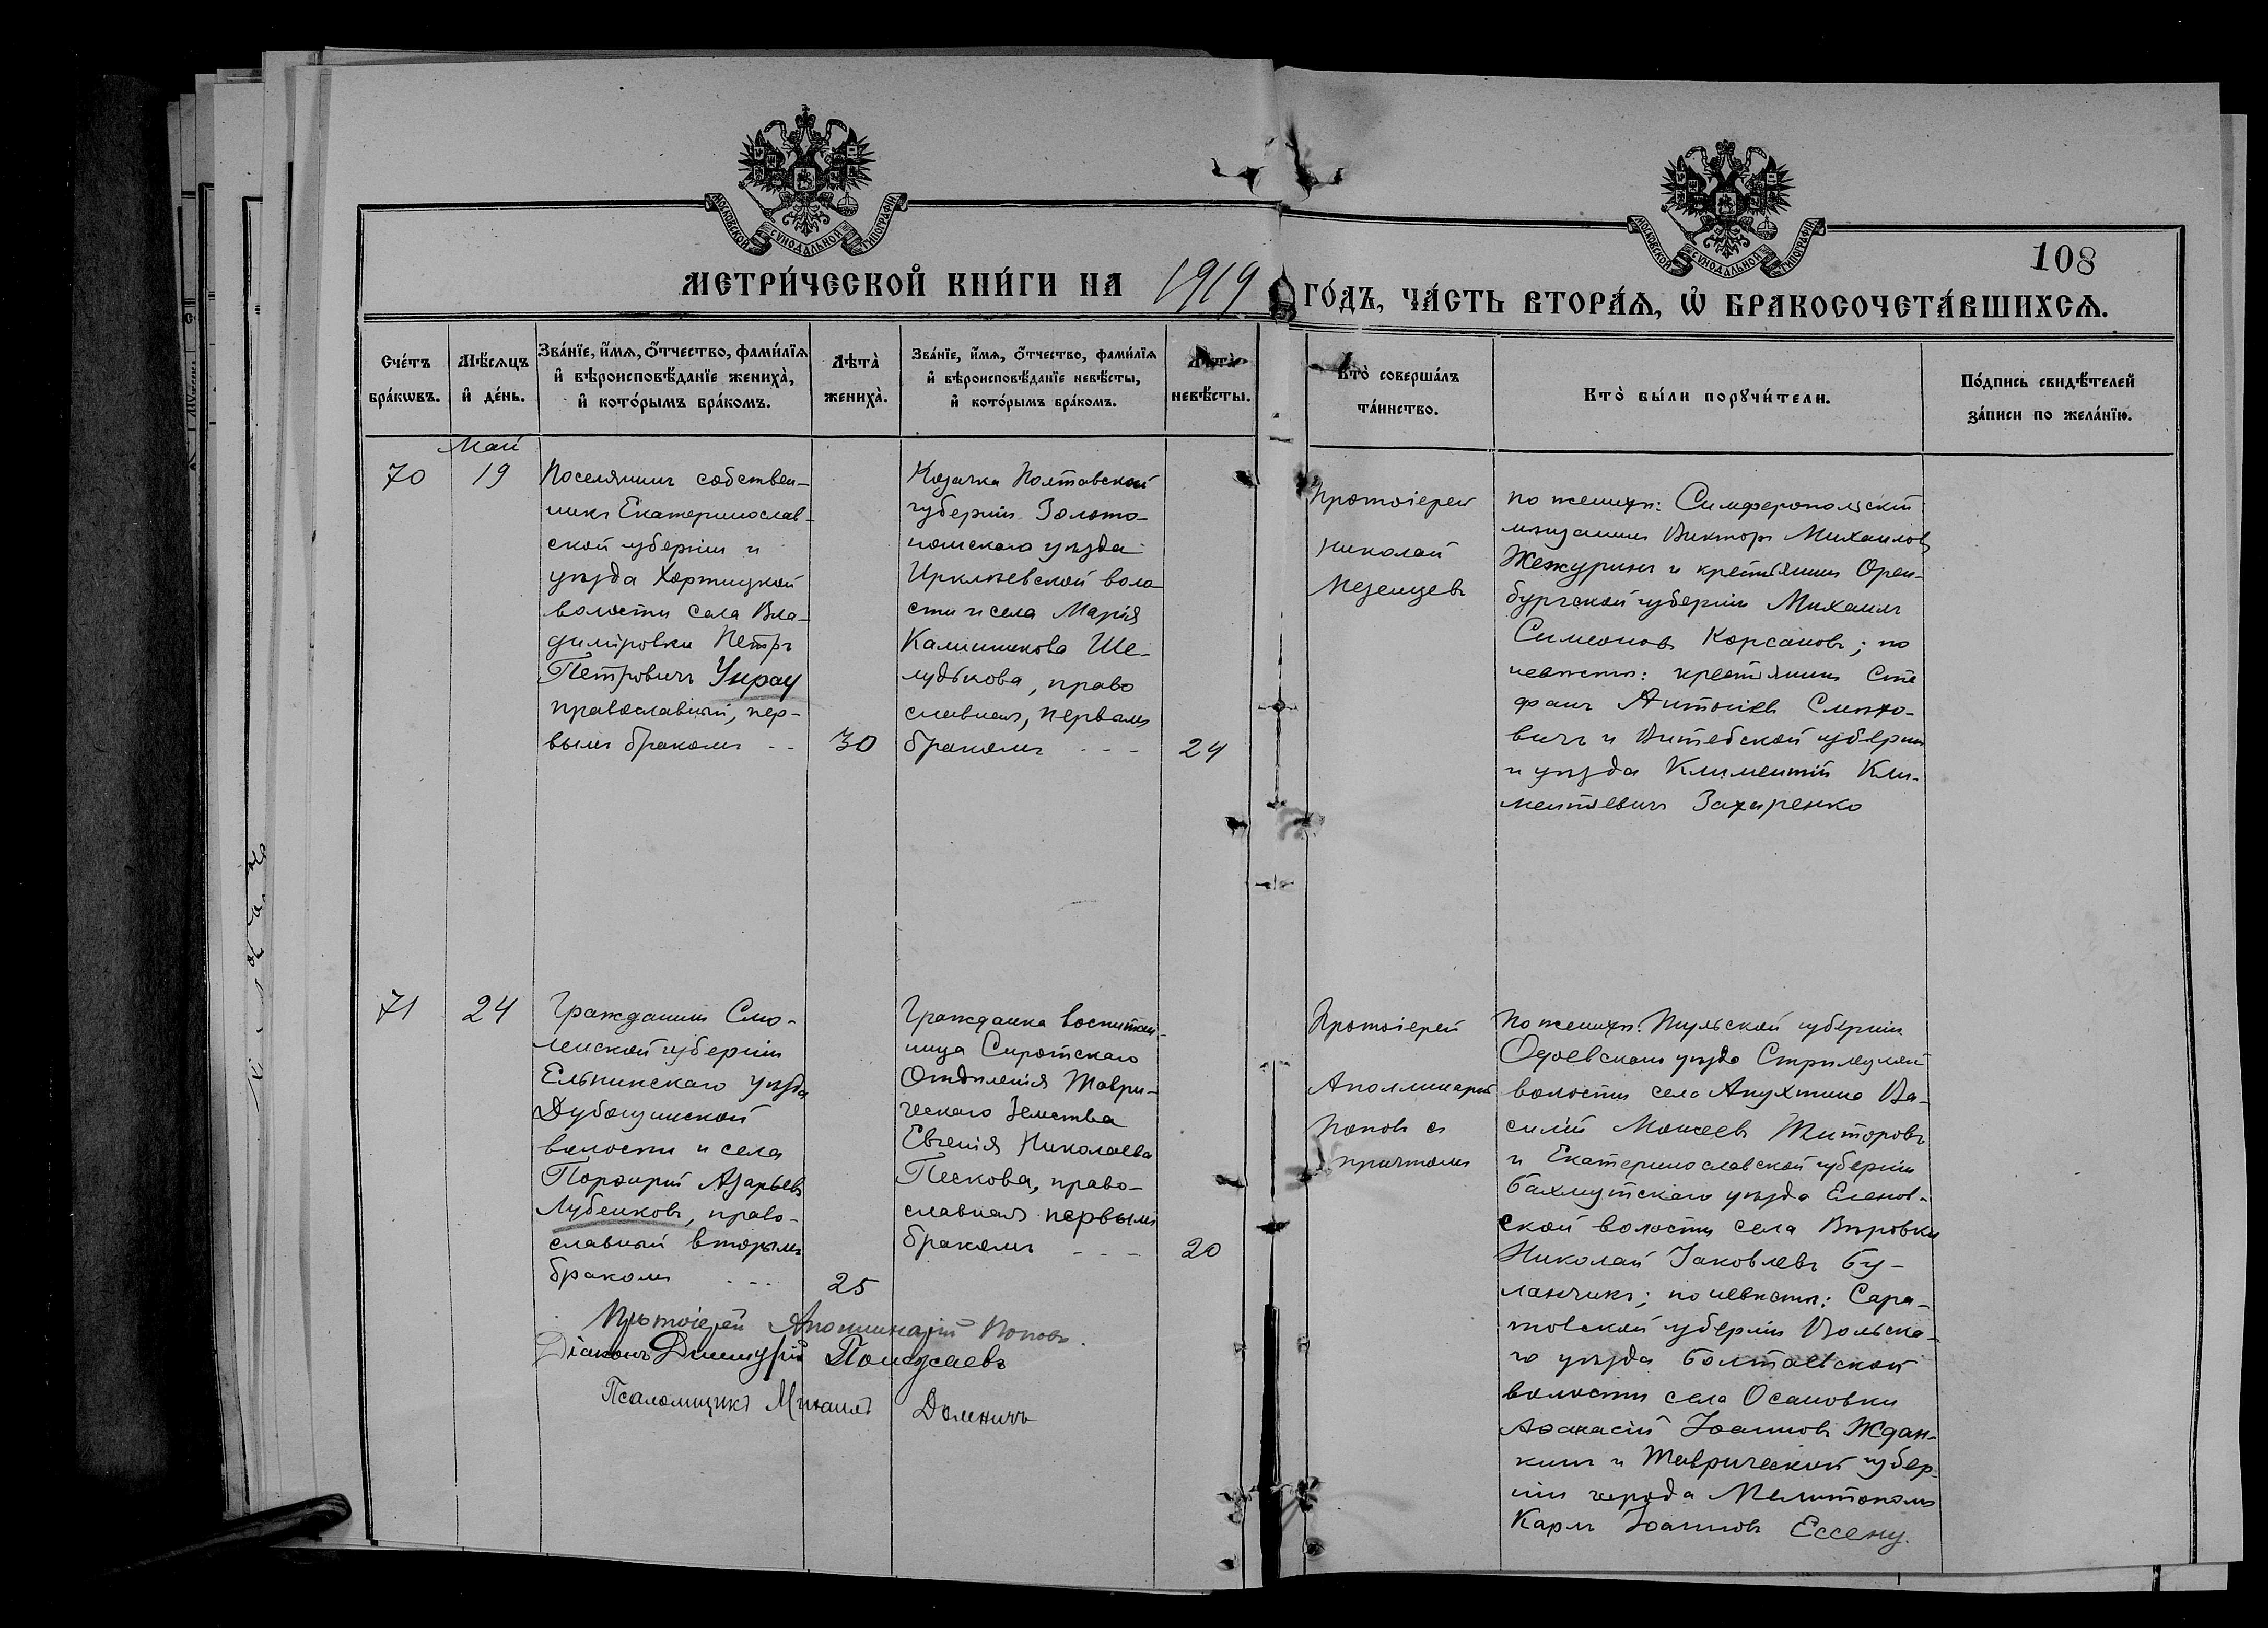 МОСКОВСКОЙ СѴНОДАЛЬНОЙ ТИПОГРАФІИ
МОСКОВСКОЙ СѴНОДАЛЬНОЙ ТИПОГРАФІИ
108
МЕТРИ́ЧЕСКОЙ КНИ́ГИ НА 1919 ГО́ДЪ, ЧА́СТЬ ВТОРА́Ѧ, Ѽ БРАКОСОЧЕТА́ВШИХСѦ.
Сче́тъ
бра́кѡвъ.
Мѣ́сѧцъ
и҆ де́нь.
Зва́нїе, и҆́мѧ, ѻ҆́тчество, фами́лїѧ
и҆ вѣроисповѣ́данїе жениха̀,
и҆ кото́рымъ бра́комъ.
Лѣта̀
жениха̀.
Зва́нїе, и҆́мѧ, ѻ҆́тчество, фами́лїѧ
и҆ вѣроисповѣ́данїе невѣ́сты,
и҆ кото́рымъ бра́комъ.
Лѣта̀
невѣ́сты.
Кто̀ соверша́лъ
та́инство.
Кто̀ бы́ли порꙋчи́тели.
По́дпись свидѣ́телей
за́писи по жела́нїю.
Май
70
19
Поселянинъ собствен-
никъ Екатеринослав-
ской губерніи и
уѣзда Хортицкой
волости села Вла-
диміровки Петръ
Петровичъ Унрау
православный, пер-
вымъ бракомъ --
30
Козачка Полтавской
губерніи Золото-
ношскаго уѣзда
Ирклѣевской воло-
сти и села Марія
Калинникова Ше-
лудькова, право
славная, первымъ
бракомъ ---
24
Протоіерей
Николай
Мезенцевъ
по женихѣ: Симферопольскій
мѣщанинъ Викторъ Михаиловъ
Межуринъ и крестьянинъ Орен-
бургской губерніи Михаилъ
Симеоновъ Корсаковъ; по
невѣстѣ: крестьянинъ Сте
фанъ Антоніев
вичъ и Витебской губерніи
и уѣзда Климентій Кли-
ментьевичъ Захаренко
71
24
Гражданинъ Смо-
ленской губерніи
Ельнинскаго уѣзда
волости и села
Порфирій Азарьевъ
Лубенковъ, право-
славный вторымъ
бракомъ ---
25
Гражданка воспитан-
ница Сиротскаго
Отдѣленія Таври-
ческаго Земства
Евгенія Николаева
Пескова, право-
славная первымъ
бракомъ ---
20
Протоіерей
Аполлинарій
Поповъ съ
причтомъ
По женихѣ: Тульской губерніи
Одоевскаго уѣзда Стрѣлецкой
волости села Апухтина Ва-
силій Моисеев Титоровъ
и Екатеринославской губерніи
Бахмутскаго уѣзда Еленов-
ской волости села Вѣровки
Николай Іаковлевъ Бу-
ланчикъ; по невѣстѣ: Сара-
товской губерніи Вольска-
го уѣзда Балтайской
волости села Осановки
Афанасій Іоанновъ Ждан-
кинъ и Таврической губер-
ніи города Мелитополя
Карлъ Іоанновъ Ессену.
Протоіерей Аполлинарій Поповъ.
Діаконъ Димитрій
Псаломщикъ Михаилъ Доленичъ